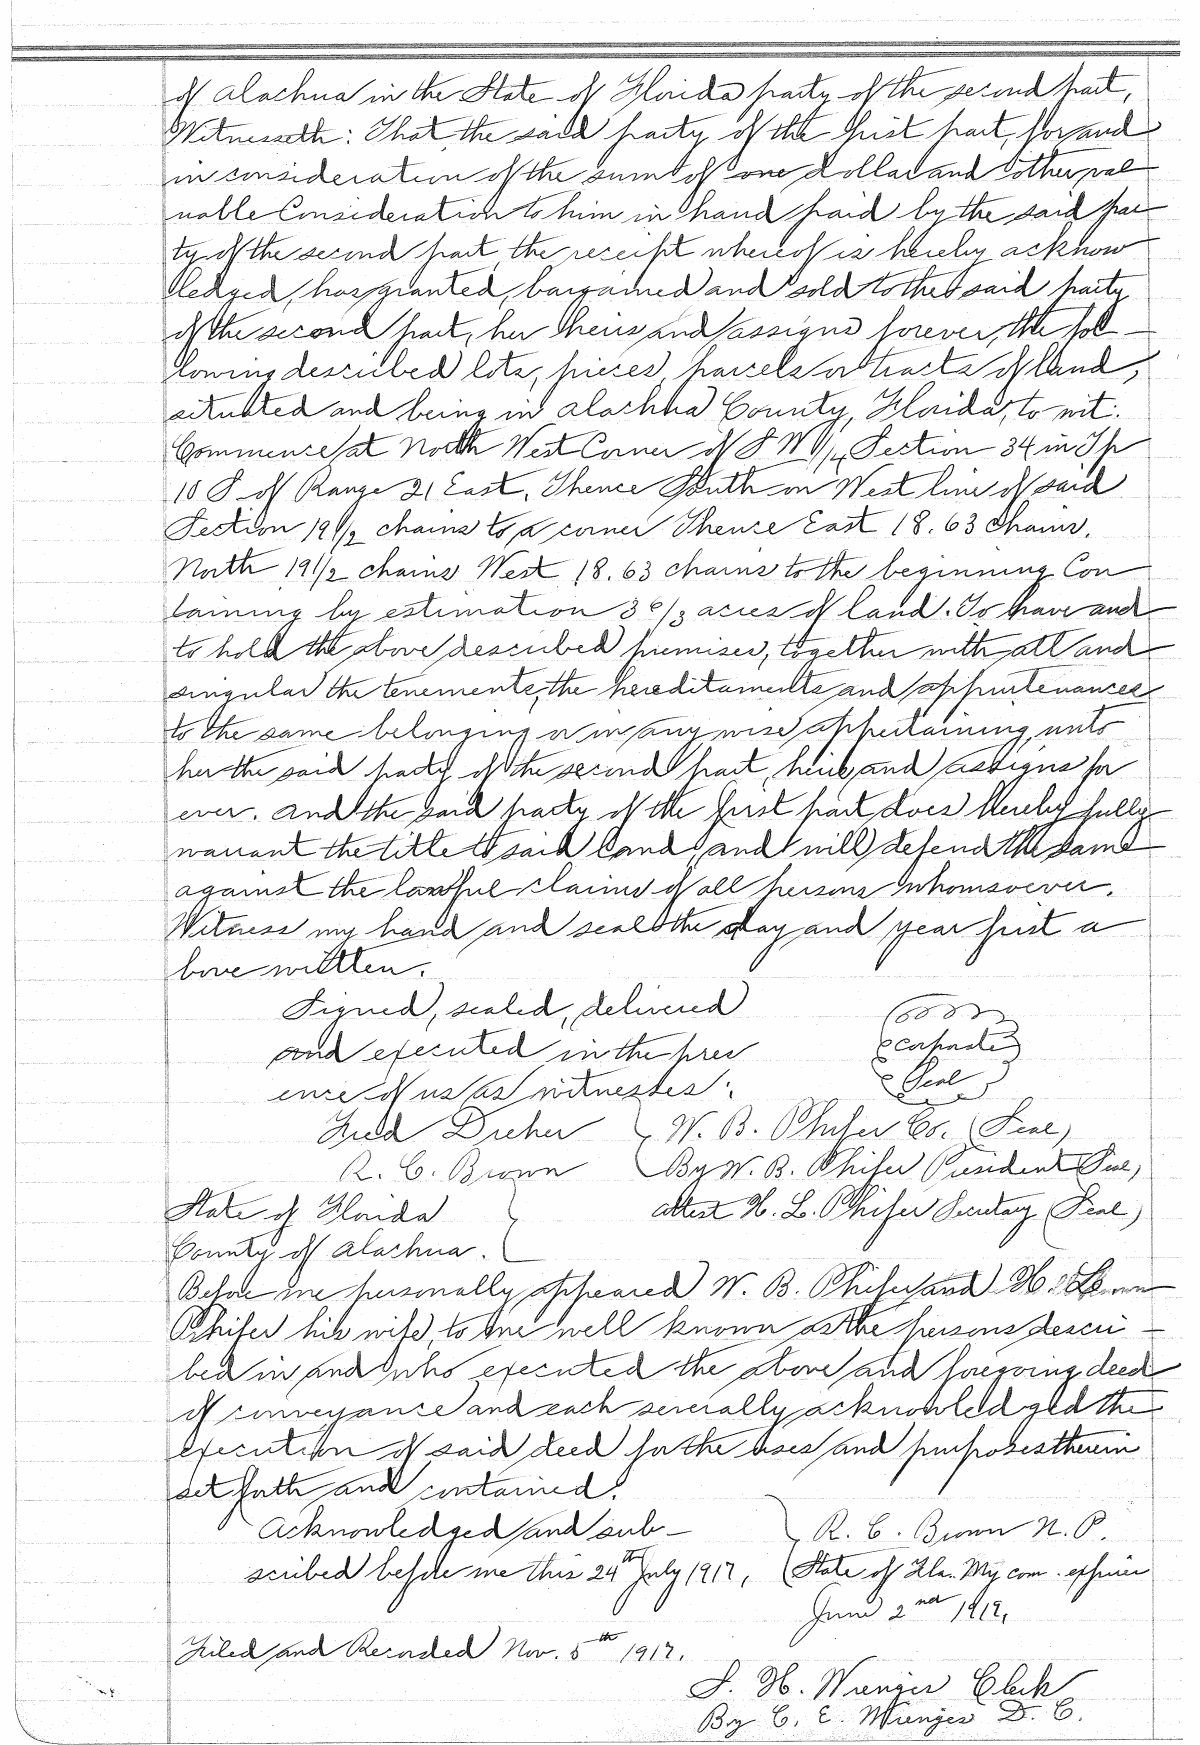 of Alachua in the State of Florida party of the second part,
Witnesseth: That the said party of the first part, for and
in consideration of the sum of one dollar and other val
uable Consideration to him in hand paid by the said par
ty of the second part, the receipt whereof is hereby acknow
ledged, has granted, bargained and sold to the said party
of the second part, her heirs and assigns forever, the fol-
lowing described lots, pieces, parcels or tracts of land,
situated and being in Alachua County, Florida, to wit:
Commence at North West Corner of S W 1/4 Section 34 in Tp
10 S of Range 21 East, Thence South on West line of said
Section 19 1/2 chains to a corner Thence East 18.63 Chains.
North 19 1/2 chains West 18.63 chains to the beginning Con
taining by estimation 36/3 acres of land. To have and
to hold the above described premises, together with all and
singular the tenements, the hereditaments and appurtenances
to the same belonging or in any wise appertaining, unto
her the said party of the second part, heirs and assigns for
ever. And the said party of the first part does hereby fully
warrant the title to said land, and will defend the same
against the lawful claims of all persons whomsoever.
Witness my hand and seal the day and year first a
bove written.
Signed, sealed, delivered
and executed in the pres
ence of us as witnesses:
Corporate
Seal
Fred Dreher W. B. Phifer Co. (Seal)
R. C. Brown By W. B. Phifer President (Seal)
State of Florida Attest H. L. Phifer Secretary (Seal)
County of Alachua.
Before me personally appeared W. B. Phifer and H.
Phifer his wife, to me well known as the persons descri-
bed in and who executed the above and foregoing deed
of conveyance and each severally acknowledged the
execution of said deed for the uses and purposes therein
set forth and contained.
Acknowledged and sub- R. C. Brown N. P.
scribed before me this 24th July 1917, State of Fla. My com. expires
June 2nd 1919,
Filed and Recorded Nov. 5th 1917.
S. H. Wienges Clerk
By C. E. Wienges D. C.